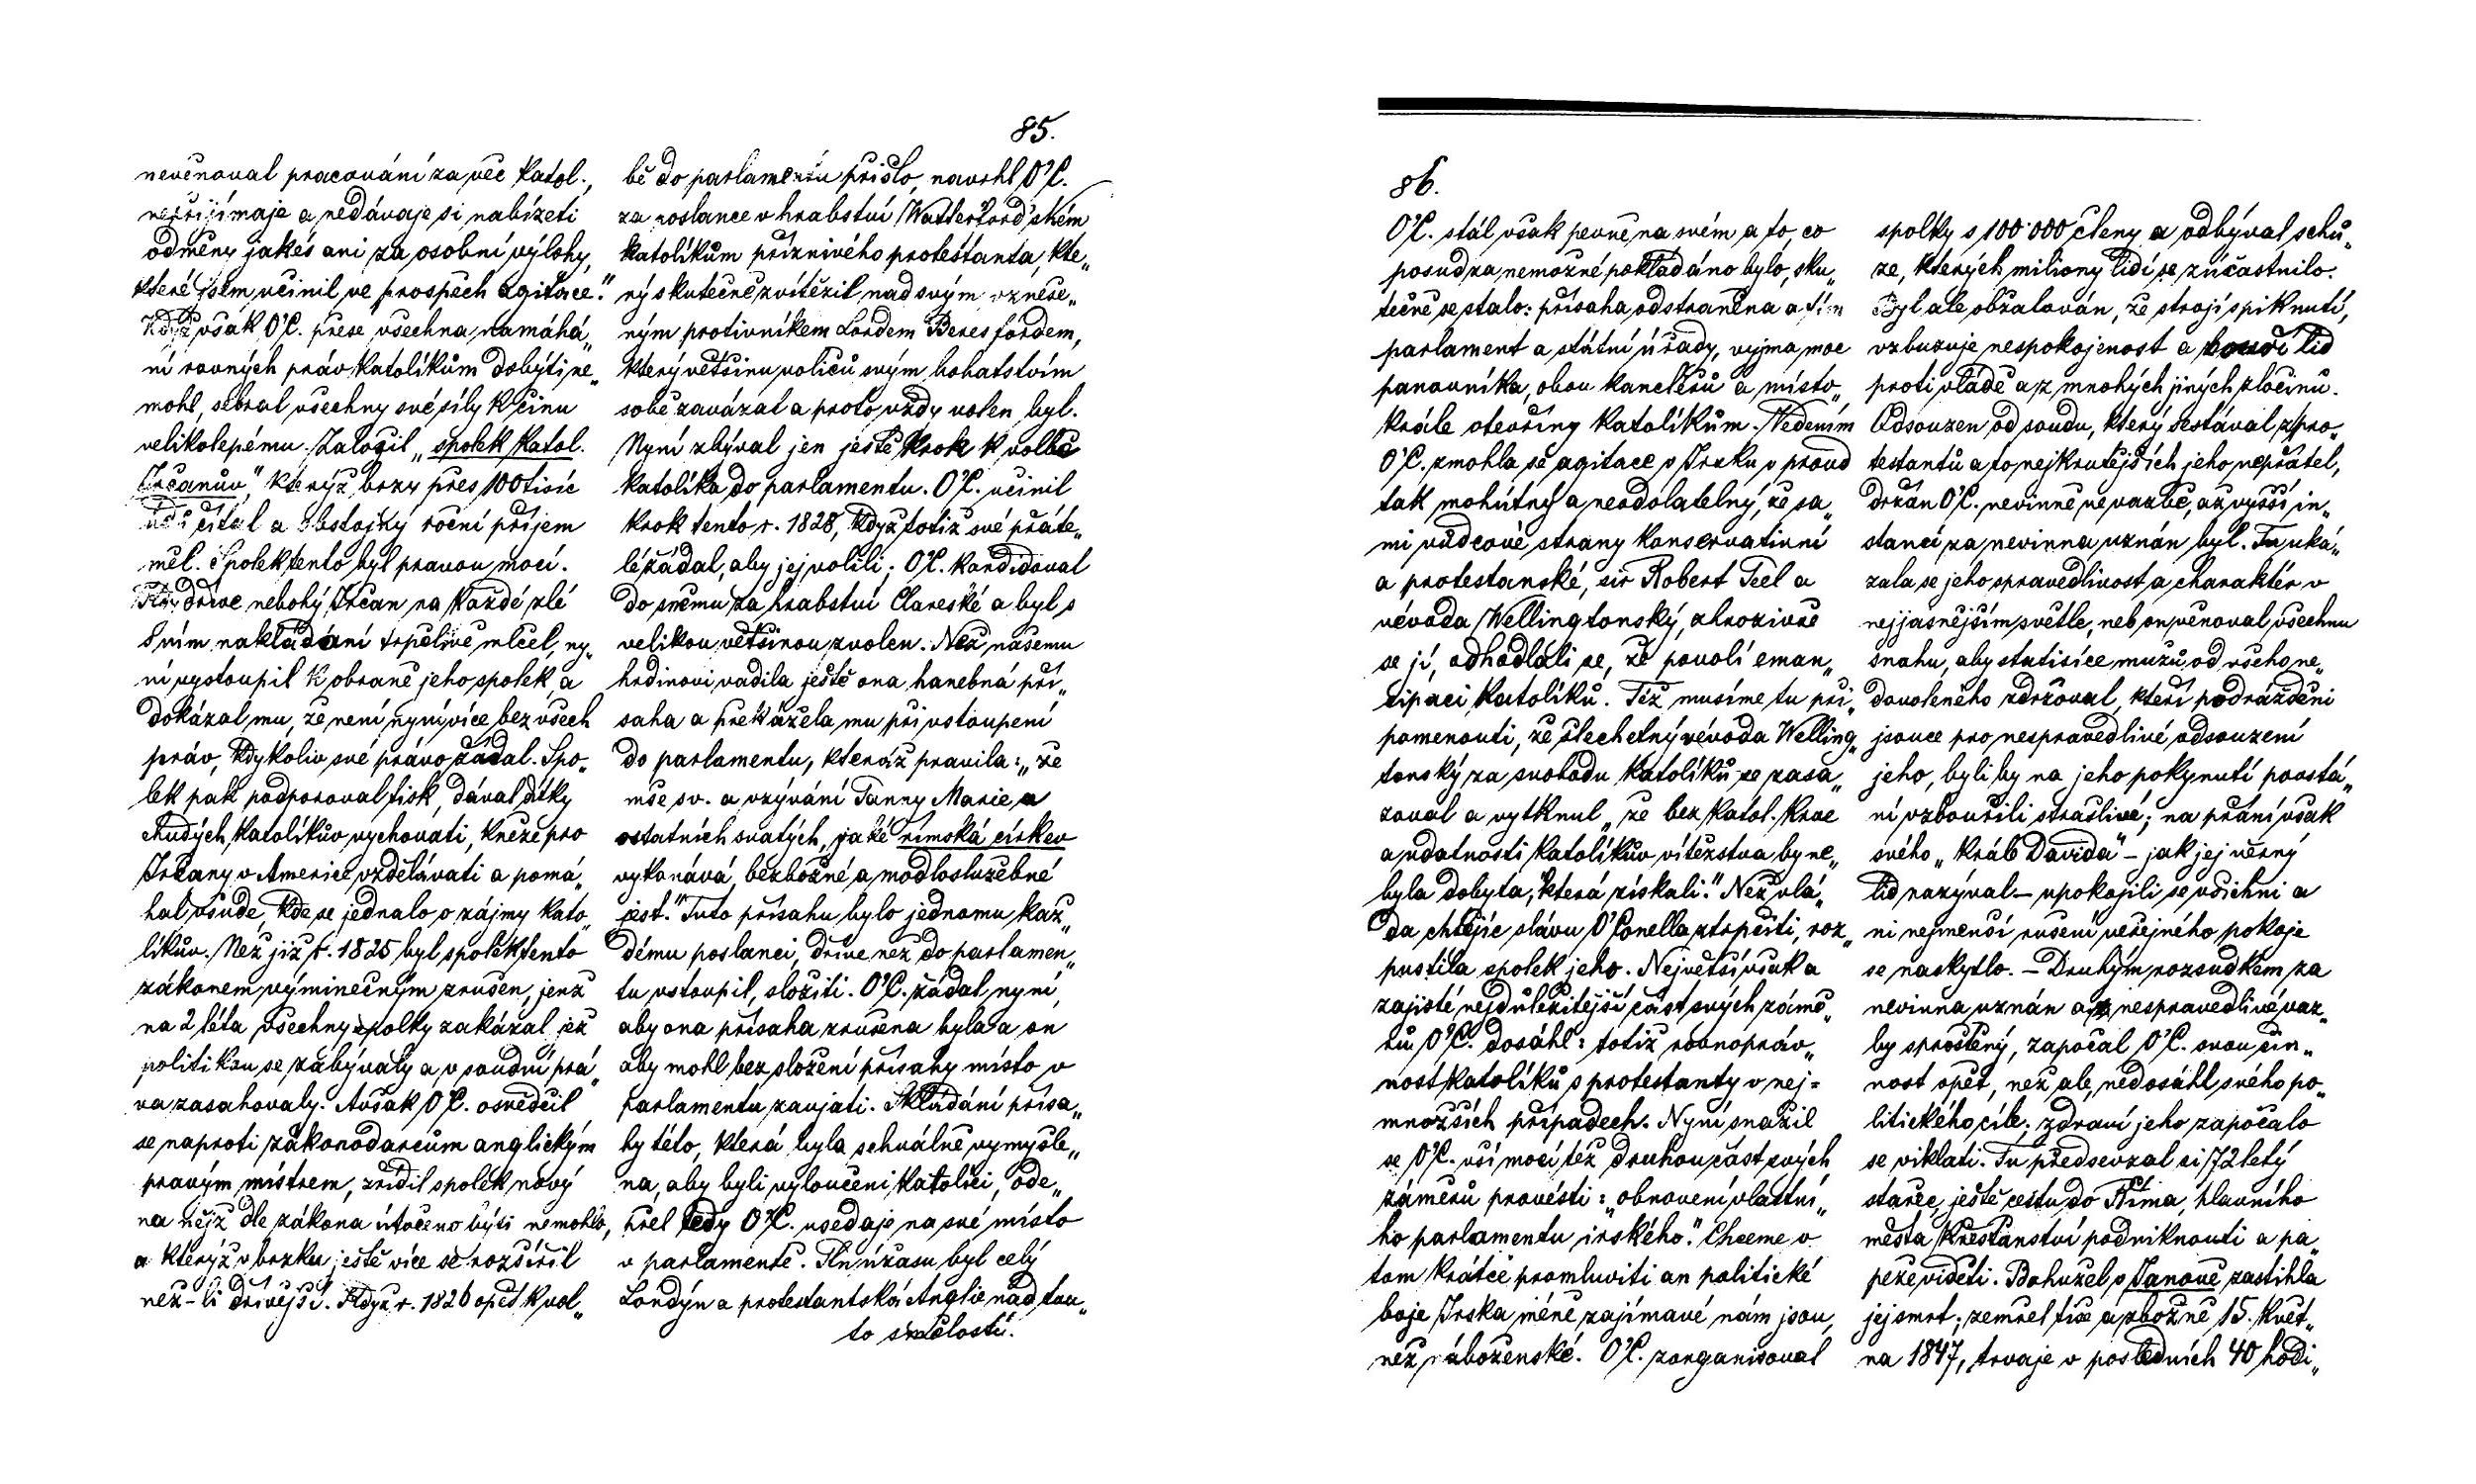 85.
nevěnoval pracování za věc katol.,
nepřijímaje a nedávaje si nabízeti
odměny jakés ani za osobní výlohy,
které jsem učinil ve prospěch agitace."
Když však O'C. přese všechna namáhá„
ní rovných práv katolíkům dobýti ne„
mohl, sebral všechny své síly k činu
velikolepému. Založil „spolek katol.
Irčanův" kterýž brzy přes 100 tisíc
údů čítal a obstojný roční příjem
měl. Spolek tento byl pravou mocí.
Kdy dříve nebohý Irčan na každé zlé
s ním nakládání trpělivě mlčel, ny„
ní vystoupil k obraně jeho spolek a
dokázal mu, že není nyní více bez všech
práv, kdykoliv své právo žádal. Spo„
lek pak podporoval tisk, dával dítky
chudých katolíkův vychovati, kněze pro
Irčany v Americe vzdělávati a pomá„
hal všude, kde se jednalo o zájmy kato„
líkův. Než již r. 1825 byl spolek tento
zákonem výminečným zrušen, jenž
na 2 léta všechny spolky zakázal jež
politikou se zabývaly a v soudní prá„
va zasahovaly. Avšak O'C. osvědčil
se naproti zákonodarcům anglickým
pravým mistrem, zřídil spolek nový
na nějž dle zákona útočeno býti nemohlo,
a kterýž v brzku ještě více se rozšířil
než-li dřívější. Když r. 1826 opět k vol„
bě do parlamentu přišlo, navrhl O'C.
za poslance v hrabství Watterfordském
katolíkům příznivého protestanta, kte„
rý skutečně zvítězil nad svým vznеše„
ným protivníkem Lordem Beresfordem,
který většinu voličů svým bohatstvím
sobě zavázal a proto vždy volen byl.
Nyní zbýval jen ještě krok k volbě
katolíka do parlamentu. O'C. učinil
krok tento r. 1828, když totiž své přáte„
lé žádal, aby jej volili; O'C. kandidoval
do sněmu za hrabství Clareské a byl s
velikou většinou zvolen. Než našemu
hrdinovi vadila ještě ona hanebná pří„
saha a překážela mu při vstoupení
do parlamentu, kteráž pravila: „že
mše sv. a vzývání Panny Marie a
ostatních svatých, jaké římská církev
vykonává, bezbožné a modloslužebné
jest." Tuto přísahu bylo jednomu kaž„
dému poslanci, dříve než do parlamen„
tu vstoupil, složiti. O'C. žádal nyní,
aby ona přísaha zrušena byla a on
aby mohl bez složení přísahy místo v
parlamentu zaujati. Skládání přísa„
hy této, která byla schválně vymyšle„
na, aby byli vyloučeni katolíci, ode„
přel tedy O'C. usedaje na své místo
v parlamentě. Pln úžasu byl celý
Londýn a protestantská Anglie nad tou„
to smělostí.
86.
O'C. stál však pevně na svém a to, co
posud za nemožné pokládáno bylo, sku„
tečně se stalo: přísaha odstraněna a tím
parlament a státní úřady, vyjma moc
panovníka, obou kancléřů a místo„
krále otevříny katolíkům. Vedením
O'C. zmohla se agitace v Irsku v proud
tak mohútný a neodolatelný, že sa„
mi vůdcové strany konservativní
a protestanské, sir Robert Peel a
vévoda Wellingtonský, zhrozivše
se jí, odhodlali se, že povolí eman„
cipaci katolíků. Též musíme tu při„
pomenouti, že šlechetný vévoda Welling„
tonský za svobodu katolíků se zasa„
zoval a vytknul „že bez katol. krve
a udatnosti katolíkův vítězstva by ne„
byla dobyta, která získali." Než vlá„
da chtějíc slávu O'Conella ztrpčiti, roz„
pustila spolek jeho. Největší však a
zajisté nejdůležitější část svých zámě„
rů O'C. dosáhl: totiž rovnopráv„
nost katolíků s protestanty v nej=
množších případech. Nyní snažil
se O'C. vší mocí též druhou část svých
záměrů provésti: „obnovení vlastní„
ho parlamentu irského". Chceme v
tom krátce promluviti an politické
boje Irska méně zajímavé nám jsou,
než náboženské. O'C. zorganisoval
spolky s 100'000 členy a odbýval schů„
ze, kterých miliony lidí se zúčastnilo.
Byl ale obžalován, že strojí spiknutí,
vzbuzuje nespokojenost a bouří lid
proti vládě a z mnohých jiných zločinů.
Odsouzen od soudu, který sestával z pro„
testantů a to nejkrutějších jeho nepřátel,
držán O'C. nevinně ve vazbě, až vyšší in„
stancí za nevinna uznán byl. Tu uká„
zala se jeho spravedlivost a charaktér v
nejjasnějším světle, neb on věnoval všechnu
snahu, aby statisíce mužů od všeho ne„
dovoleného zdržoval, kteří podrážděni
jsouce pro nespravedlivé odsouzení
jeho, byli by na jeho pokynutí povstá„
ní vzbouřili strašlivé; na přání však
svého „krále Davida" – jak jej věrný
lid nazýval – upokojili se všichni a
ni nejmenší rušení veřejného pokoje
se naskytlo. – Druhým rozsudkem za
nevinna uznán a z nespravedlivé vaz„
by sproštěný, započal O'C. svou čin„
nost opět, než ale nedosáhl svého po„
litického cíle; zdraví jeho započalo
se viklati. Tu předsevzal si 72letý
stařec, ještě cestu do Říma, hlavního
města křesťanství podniknouti a pa„
peže viděti. Bohužel v Janově zastihla
jej smrt; zemřel tiše a zbožně 15. květ„
na 1847, trvaje v posledních 40 hodi„